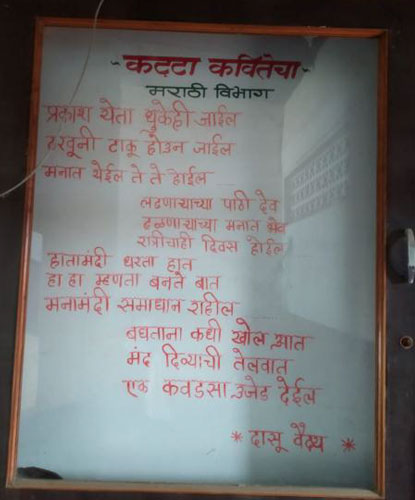 - कट्टा कवितेचा -
मराठी विभाग
प्रकाश येता धुकेही जाईल
ठरवूनी टाकू होउन जाईल
मनात येईल ते ते होईल
लढणाऱ्याच्या पाठी देव
ढळणाऱ्याच्या मनात भेव
रात्रीचाही दिवस होईल
हातामंदी धरता हात
हा हा म्हणता बनते बात
मनामंदी समाधान राहील
बघताना कधी खोल आत
मंद दिव्याची तेलवात
एक कवडसा उजेड देईल
* दासू वैद्य *